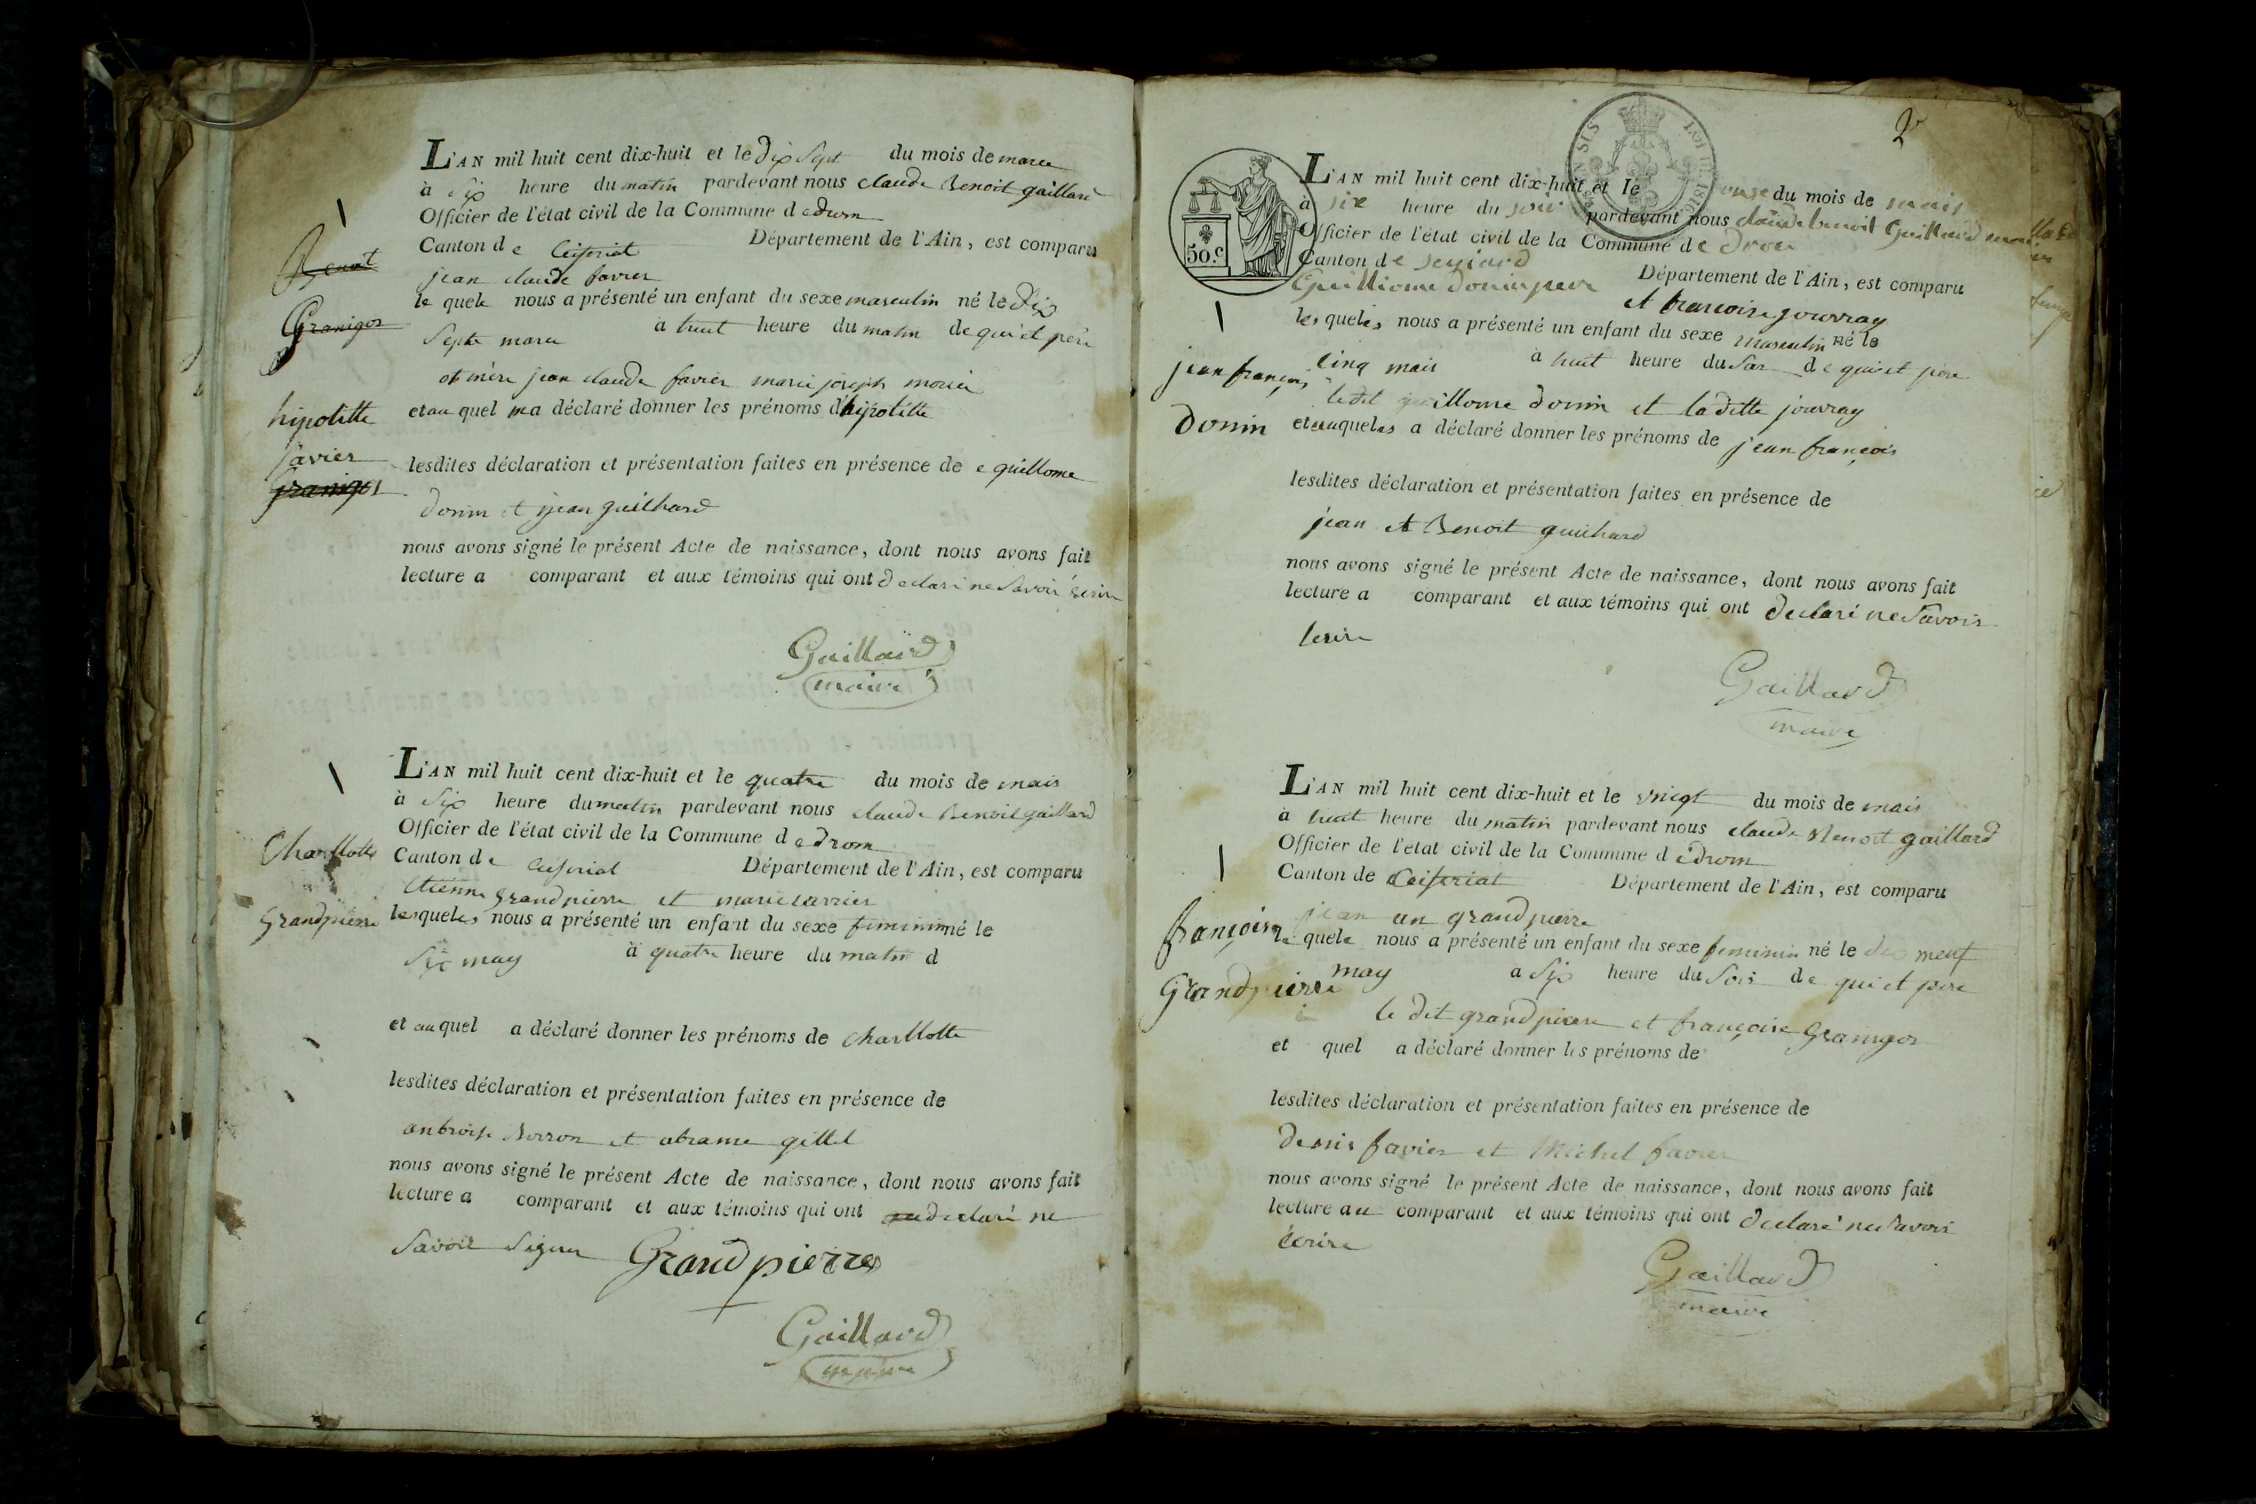 Benoit
Granigos
hipolitte
favier
granigos
L'AN mil huit cent dix-huit et le dix Sept du mois de mars
à Six heure du matin pardevant nous claude Benoit gaillard
Officier de l'état civil de la Commune de drom
Canton de Ceiseriat Département de l'Ain, est comparu
jean claude favier
le quele nous a présenté un enfant du sexe masculin né le dix
Septe mars a huit heure du matin de qui et père
et mère jean claude favier marie joseph
et au quel ma déclaré donner les prénoms d'hipolitte
lesdites déclaration et présentation faites en présence de guillome
donin et jean guilhard
nous avons signé le présent Acte de naissance, dont nous avons fait
lecture a comparant et aux témoins qui ont declaré ne Savoir écrire
Gaillard
maire
Charllotte
Grandpierre
L'AN mil huit cent dix-huit et le quatre du mois de mais
à Six heure du matin pardevant nous claude Benoit gaillard
Officier de l'état civil de la Commune de drom
Canton de Ceiseriat Département de l'Ain, est comparu
Etienne grandpierre et marie
les queles nous a présenté un enfant du sexe feminin né le
Six may à quatre heure du matin d
et au quel a déclaré donner les prénoms de charllotte
lesdites déclaration et présentation faites en présence de
anbroise et abrame gillet
nous avons signé le présent Acte de naissance, dont nous avons fait
lecture a comparant et aux témoins qui ont declaré ne
Savoir Signer Grandpierre
Gaillard
maire
2
LOI DE 1816
50.c
jean françois
donin
L'AN mil huit cent dix-huit et le onze du mois de mais
à six heure du soir pardevant nous claude benoit Gaillard maire
Officier de l'état civil de la Commune de drom
Canton de Département de l'Ain, est comparu
Guilliome donin pere et francoise jouvray
les queles nous a présenté un enfant du sexe masculin né le
Cinq mais à huit heure du Soir de qui et père
ledit guillome donin et la ditte jouvray
et auqueles a déclaré donner les prénoms de jean françois
lesdites déclaration et présentation faites en présence de
jean et Benoit guichard
nous avons signé le présent Acte de naissance, dont nous avons fait
lecture a comparant et aux témoins qui ont declaré ne Savoir
ecrire
Gaillard
maire
françoise
Grandpierre
L'AN mil huit cent dix-huit et le vingt du mois de mais
à huit heure du matin pardevant nous claude Benoit gaillard
Officier de l'état civil de la Commune de drom
Canton de Ceiseriat Département de l'Ain, est comparu
jean grandpierre
le quele nous a présenté un enfant du sexe feminin né le dix neuf
may a Six heure du Soir de qui et pere
le dit grandpierre et françoise Granigos
et quel a déclaré donner les prénoms de
lesdites déclaration et présentation faites en présence de
denis favier et Michel favier
nous avons signé le présent Acte de naissance, dont nous avons fait
lecture au comparant et aux témoins qui ont declaré ne Savoir
écrire
Gaillard
maire